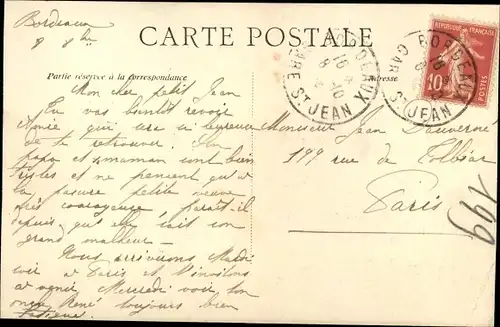 Bordeaux
8 8bre
CARTE POSTALE
Partie réservée à la correspondance
Adresse
RÉPUBLIQUE FRANÇAISE
10
POSTES
BORDEAUX
GARE ST JEAN
BORDEAUX
GARE ST JEAN
Mon cher petit Jean
Tu vas bientôt revoir
qui sera si heureuse
de te retrouver. Ton
papa et maman sont bien
tristes et ne pensent qu'à
la pauvre petite veuve
très courageuse paraît-il
depuis qu'elle sait son
grand malheur —
Nous arriverons Mardi
soir à Paris et t'invitons
à venir Mercredi voir ton
oncle René toujours bien
fatigué.
Monsieur Jean
199 rue de Tolbiac
Paris
199